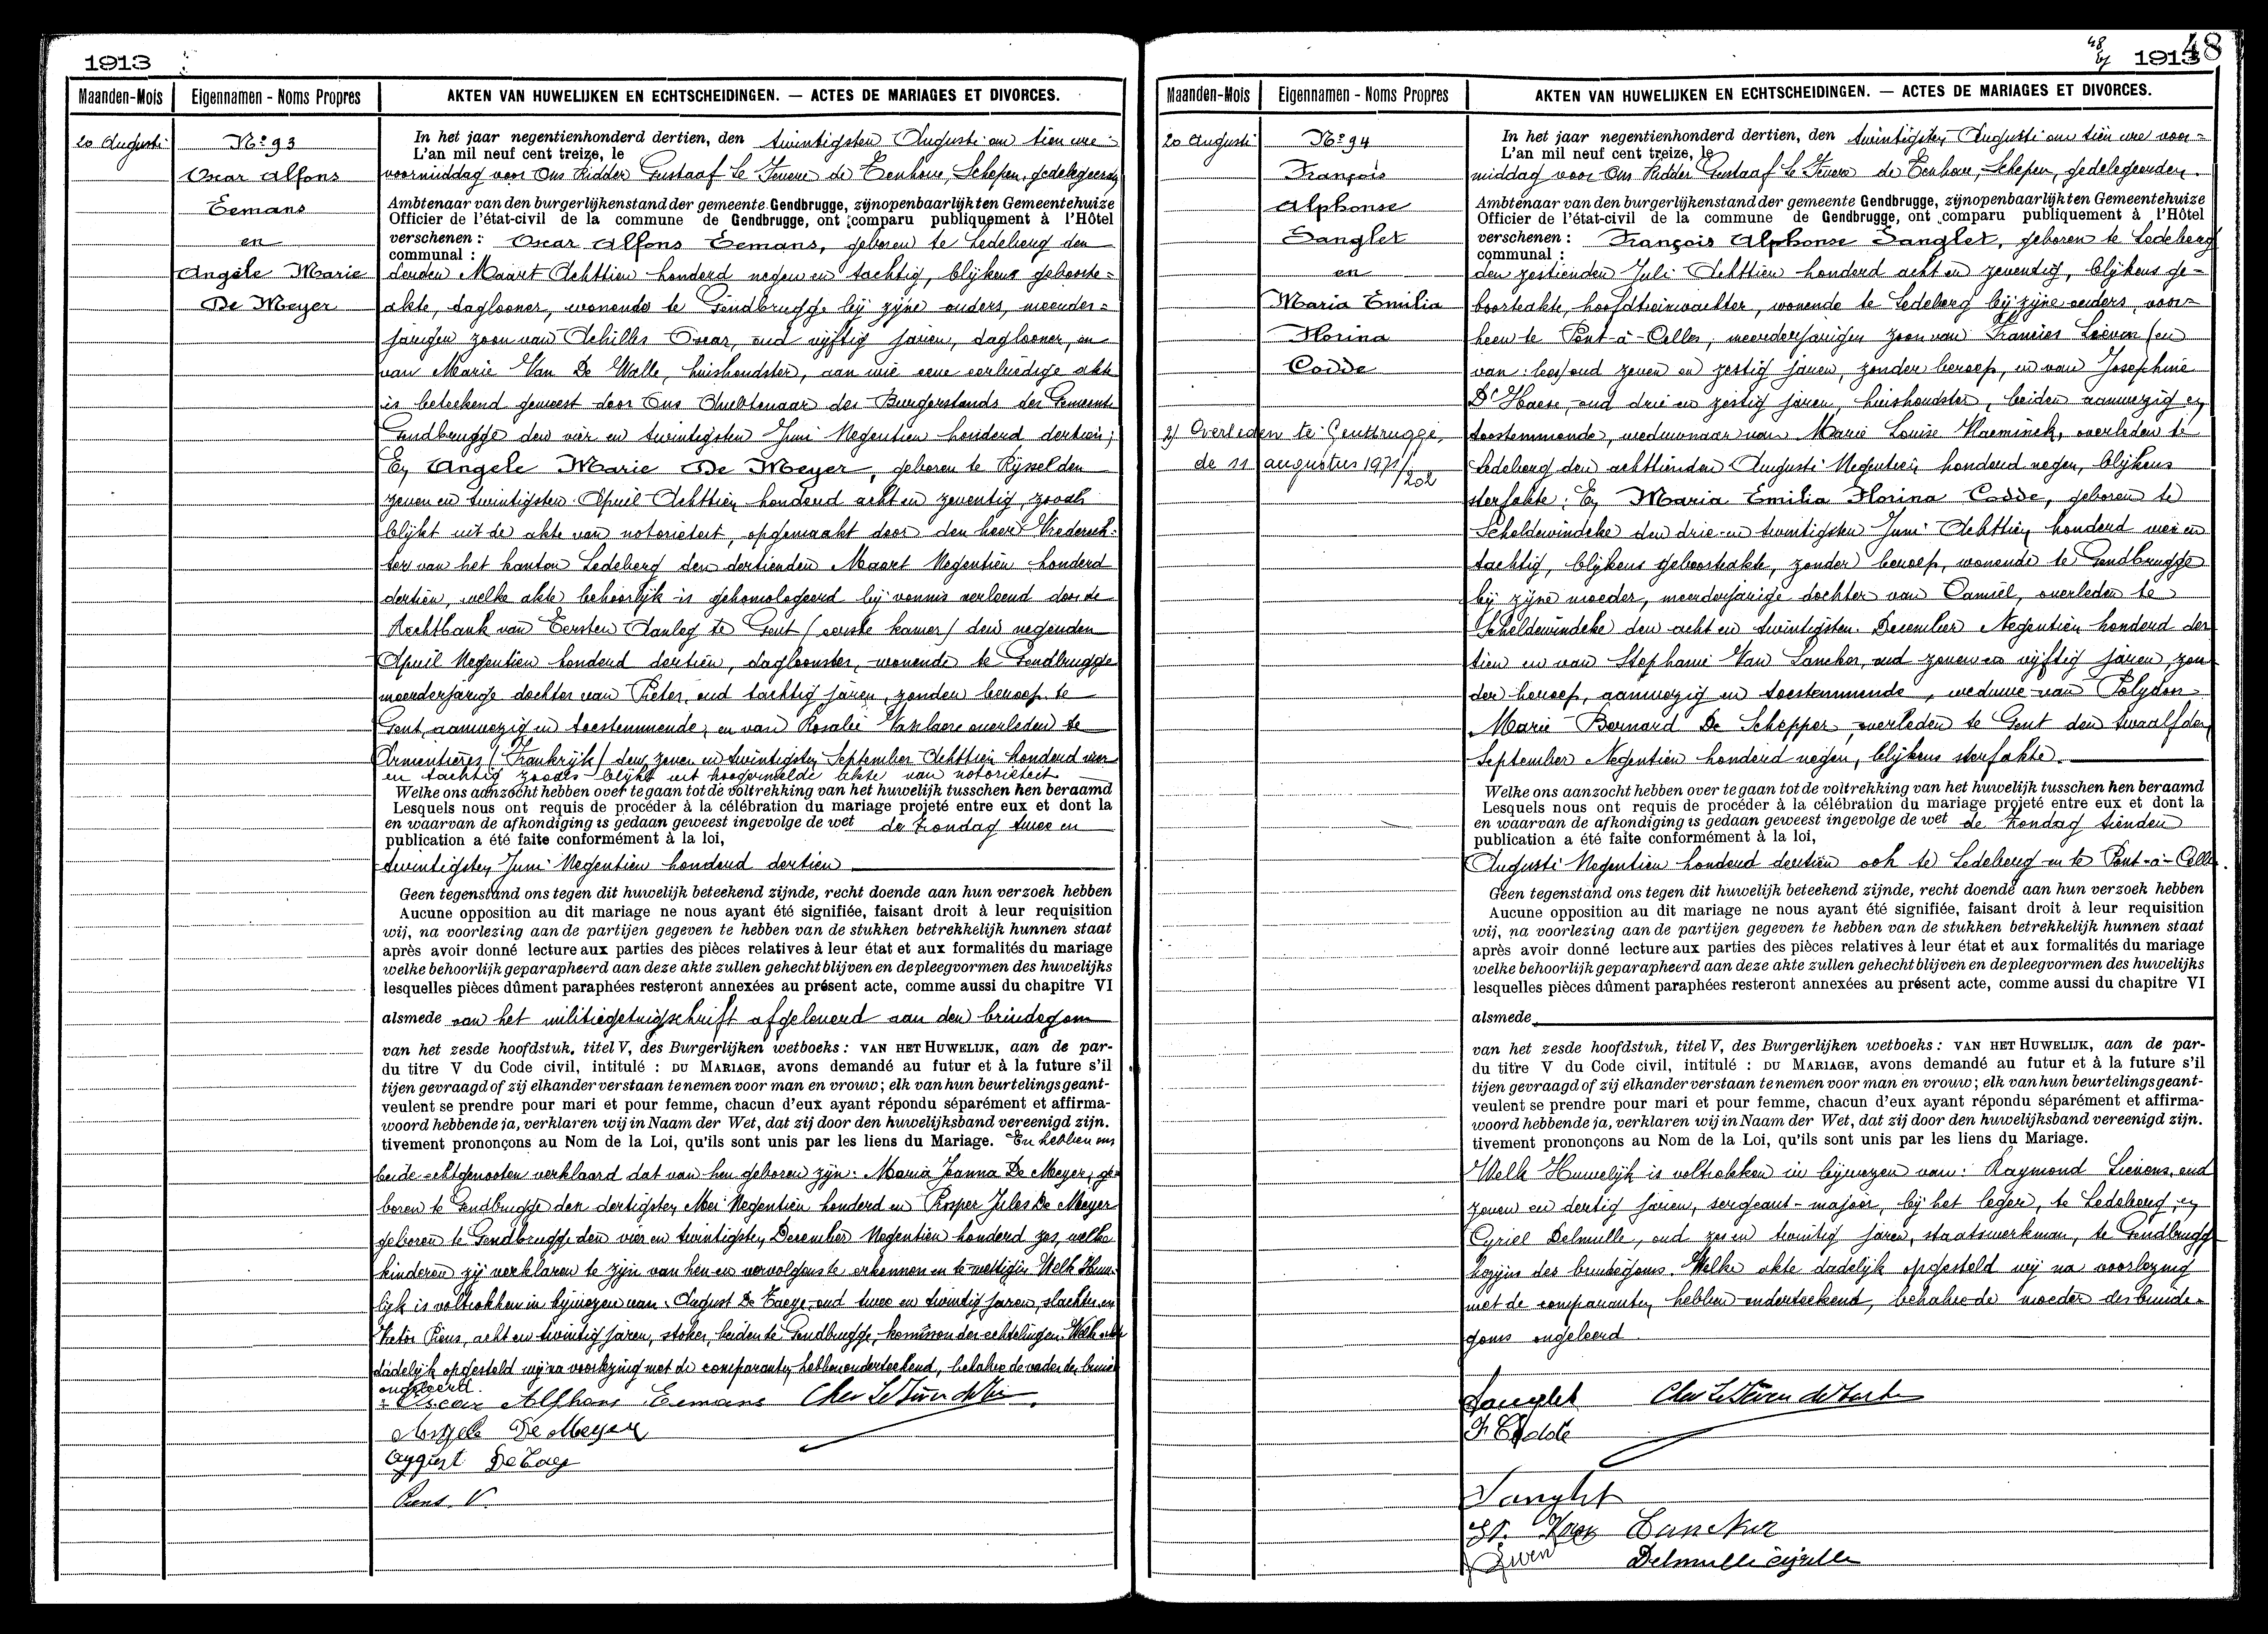 1913
Maanden-Mois
Eigennamen - Noms Propres
AKTEN VAN HUWELIJKEN EN ECHTSCHEIDINGEN. — ACTES DE MARIAGES ET DIVORCES.
20 Augusti
No 93
Oscar Alfons
Eemans
en
Angèle Marie
De Meyer
In het jaar negentienhonderd dertien, den twintigsten Augusti om tien ure
L'an mil neuf cent treize, le
voormiddag voor Ons Ridder Gustaaf Le Fevere de Tenhove, Schepen, gedelegeerden
Ambtenaar van den burgerlijkenstand der gemeente Gendbrugge, zijn openbaarlijk ten Gemeentehuize
Officier de l'état-civil de la commune de Gendbrugge, ont comparu publiquement à l'Hôtel
verschenen : Oscar Alfons Eemans, geboren te Ledeberg den
communal :
derden Maart Achttien honderd negen en tachtig, blijkens geboorte-
akte, daglooner, wonende te Gendbrugge bij zijne ouders, meerder-
jarigen zoon van Achilles Oscar, oud vijftig jaren, daglooner, en
van Marie Van De Walle, huishoudster, aan wie eene eerbiedige akte
is beteekend geweest door Ons Ambtenaar des Burgerstands der Gemeente
Gendbrugge den vier en twintigsten Juni Negentien honderd dertien;
En Angele Marie De Meyer, geboren te Rijssel den
zeven en twintigsten April Achttien honderd acht en zeventig, zooals
blijkt uit de akte van notorieteit, opgemaakt door den heer Vrederech-
ter van het kanton Ledeberg den dertienden Maart Negentien honderd
dertien, welke akte behoorlijk is gehomologeerd bij vonnis verleend door de
Rechtbank van Eersten Aanleg te Gent (eerste kamer) den negenden
April Negentien honderd dertien, dagloonster, wonende te Gendbrugge
meerderjarige dochter van Pieter, oud tachtig jaren, zonder beroep te
Gent, aanwezig en toestemmende, en van Rosalie Van laere overleden te
Armentières (Frankrijk) den zeven en twintigsten September Achttien honderd vier
en tachtig zooals blijkt uit hoogermelde akte van notorieteit
Welke ons aanzocht hebben over te gaan tot de voltrekking van het huwelijk tusschen hen beraamd
Lesquels nous ont requis de procéder à la célébration du mariage projeté entre eux et dont la
en waarvan de afkondiging is gedaan geweest ingevolge de wet de Zondag twee en
publication a été faite conformément à la loi,
twintigsten Juni Negentien honderd dertien
Geen tegenstand ons tegen dit huwelijk beteekend zijnde, recht doende aan hun verzoek hebben
Aucune opposition au dit mariage ne nous ayant été signifiée, faisant droit à leur requisition
wij, na voorlezing aan de partijen gegeven te hebben van de stukken betrekkelijk hunnen staat
après avoir donné lecture aux parties des pièces relatives à leur état et aux formalités du mariage
welke behoorlijk geparapheerd aan deze akte zullen gehecht blijven en de pleegvormen des huwelijks
lesquelles pièces dûment paraphées resteront annexées au présent acte, comme aussi du chapitre VI
alsmede van het militiegetuigschrift afgeleverd aan den bruidegom
van het zesde hoofdstuk, titel V, des Burgerlijken wetboeks : VAN HET HUWELIJK, aan de par-
du titre V du Code civil, intitulé : DU MARIAGE, avons demandé au futur et à la future s'il
tijen gevraagd of zij elkander verstaan te nemen voor man en vrouw ; elk van hun beurtelings geant-
veulent se prendre pour mari et pour femme, chacun d'eux ayant répondu séparément et affirma-
woord hebbende ja, verklaren wij in Naam der Wet, dat zij door den huwelijksband vereenigd zijn.
tivement prononçons au Nom de la Loi, qu'ils sont unis par les liens du Mariage. En hebben ons
beide echtgenooten verklaard dat van hen geboren zijn: Maria Joanna De Meyer, ge-
boren te Gendbrugge den dertigsten Mei Negentien honderd en Prosper Jules De Meyer
geboren te Gendbrugge den vier en twintigsten December Negentien honderd zes, welke
kinderen zij verklaren te zijn van hen en vervolgens te erkennen en te wettigen. Welk Huwe-
lijk is voltrokken in bijwezen van: August De Taeye, oud twee en twintig jaren, slachter, en
Victor Piens, acht en twintig jaren, stoker, beiden te Gendbrugge, kennissen der echtelingen. Welke akte
dadelijk opgesteld wij na voorlezing met de comparanten hebben onderteekend, behalve de vader der bruid
ongeleerd.
Oscar Alfhons Eemans
Angele De Meyer
August De Taey
Piens V.
1913
48
Maanden-Mois
Eigennamen - Noms Propres
AKTEN VAN HUWELIJKEN EN ECHTSCHEIDINGEN. — ACTES DE MARIAGES ET DIVORCES.
20 Augusti
No 94
François
Alphonse
Sanglet
en
Maria Emilia
Florina
Codde
2) Overleden te Gentbrugge,
de 11 augustus 1971/
1202
In het jaar negentienhonderd dertien, den twintigsten Augusti om tien ure voor-
L'an mil neuf cent treize, le
middag voor Ons Ridder Gustaaf Le Fevere de Tenhove, Schepen, gedelegeerden
Ambtenaar van den burgerlijkenstand der gemeente Gendbrugge, zijn openbaarlijk ten Gemeentehuize
Officier de l'état-civil de la commune de Gendbrugge, ont comparu publiquement à l'Hôtel
verschenen : François Alphonse Sanglet, geboren te Ledeberg
communal :
den zestienden Juli Achttien honderd acht en zeventig, blijkens ge-
boorteakte, hoofdtreinwachter, wonende te Ledeberg bij zijne ouders, voor-
heen te Pont-à-Celles, meerderjarigen zoon van Francies Lieven (en
van: lees) oud zeven en zestig jaren, zonder beroep, en van Josephine
D'Haese, oud drie en zestig jaren, huishoudster, beiden aanwezig en
toestemmende, weduwnaar van Marie Louise Vlaeminck, overleden te
Ledeberg den achttienden Augusti Negentien honderd negen, blijkens
sterfakte; En Maria Emilia Florina Codde, geboren te
Scheldewindeke den drie en twintigsten Juni Achttien honderd vier en
tachtig, blijkens geboorteakte, zonder beroep, wonende te Gendbrugge
bij zijne moeder, meerderjarige dochter van Camiel, overleden te
Scheldewindeke den acht en twintigsten December Negentien honderd der
tien en van Stephanie Van Lancker, oud zeven en vijftig jaren, zon
der beroep, aanwezig en toestemmende, weduwe van Polydoor
Marie Bernard De Schepper, overleden te Gent den twaalfden
September Negentien honderd negen, blijkens sterfakte.
Welke ons aanzocht hebben over te gaan tot de voltrekking van het huwelijk tusschen hen beraamd
Lesquels nous ont requis de procéder à la célébration du mariage projeté entre eux et dont la
en waarvan de afkondiging is gedaan geweest ingevolge de wet de Zondag tienden
publication a été faite conformément à la loi,
Augusti Negentien honderd dertien ook te Ledeberg en te Pont-à-Celles.
Geen tegenstand ons tegen dit huwelijk beteekend zijnde, recht doende aan hun verzoek hebben
Aucune opposition au dit mariage ne nous ayant été signifiée, faisant droit à leur requisition
wij, na voorlezing aan de partijen gegeven te hebben van de stukken betrekkelijk hunnen staat
après avoir donné lecture aux parties des pièces relatives à leur état et aux formalités du mariage
welke behoorlijk geparapheerd aan deze akte zullen gehecht blijven en de pleegvormen des huwelijks
lesquelles pièces dûment paraphées resteront annexées au présent acte, comme aussi du chapitre VI
alsmede
van het zesde hoofdstuk, titel V, des Burgerlijken wetboeks : VAN HET HUWELIJK, aan de par-
du titre V du Code civil, intitulé : DU MARIAGE, avons demandé au futur et à la future s'il
tijen gevraagd of zij elkander verstaan te nemen voor man en vrouw ; elk van hun beurtelings geant-
veulent se prendre pour mari et pour femme, chacun d'eux ayant répondu séparément et affirma-
woord hebbende ja, verklaren wij in Naam der Wet, dat zij door den huwelijksband vereenigd zijn.
tivement prononçons au Nom de la Loi, qu'ils sont unis par les liens du Mariage.
Welk Huwelijk is voltrokken in bijwezen van: Raymond Lievens, oud
zeven en dertig jaren, sergeant-majoor, bij het leger, te Ledeberg, en
Cyriel Delmulle, oud zes en twintig jaren, staatswerkman, te Gendbrugge
kozijns des bruidegoms. Welke akte dadelijk opgesteld wij na voorlezing
met de comparanten hebben onderteekend, behalve de moeder des bruide-
goms ongeleerd.
Sanglet
F. Codde
Sanglet
St. Van Lancker
Delmulle Cyrille